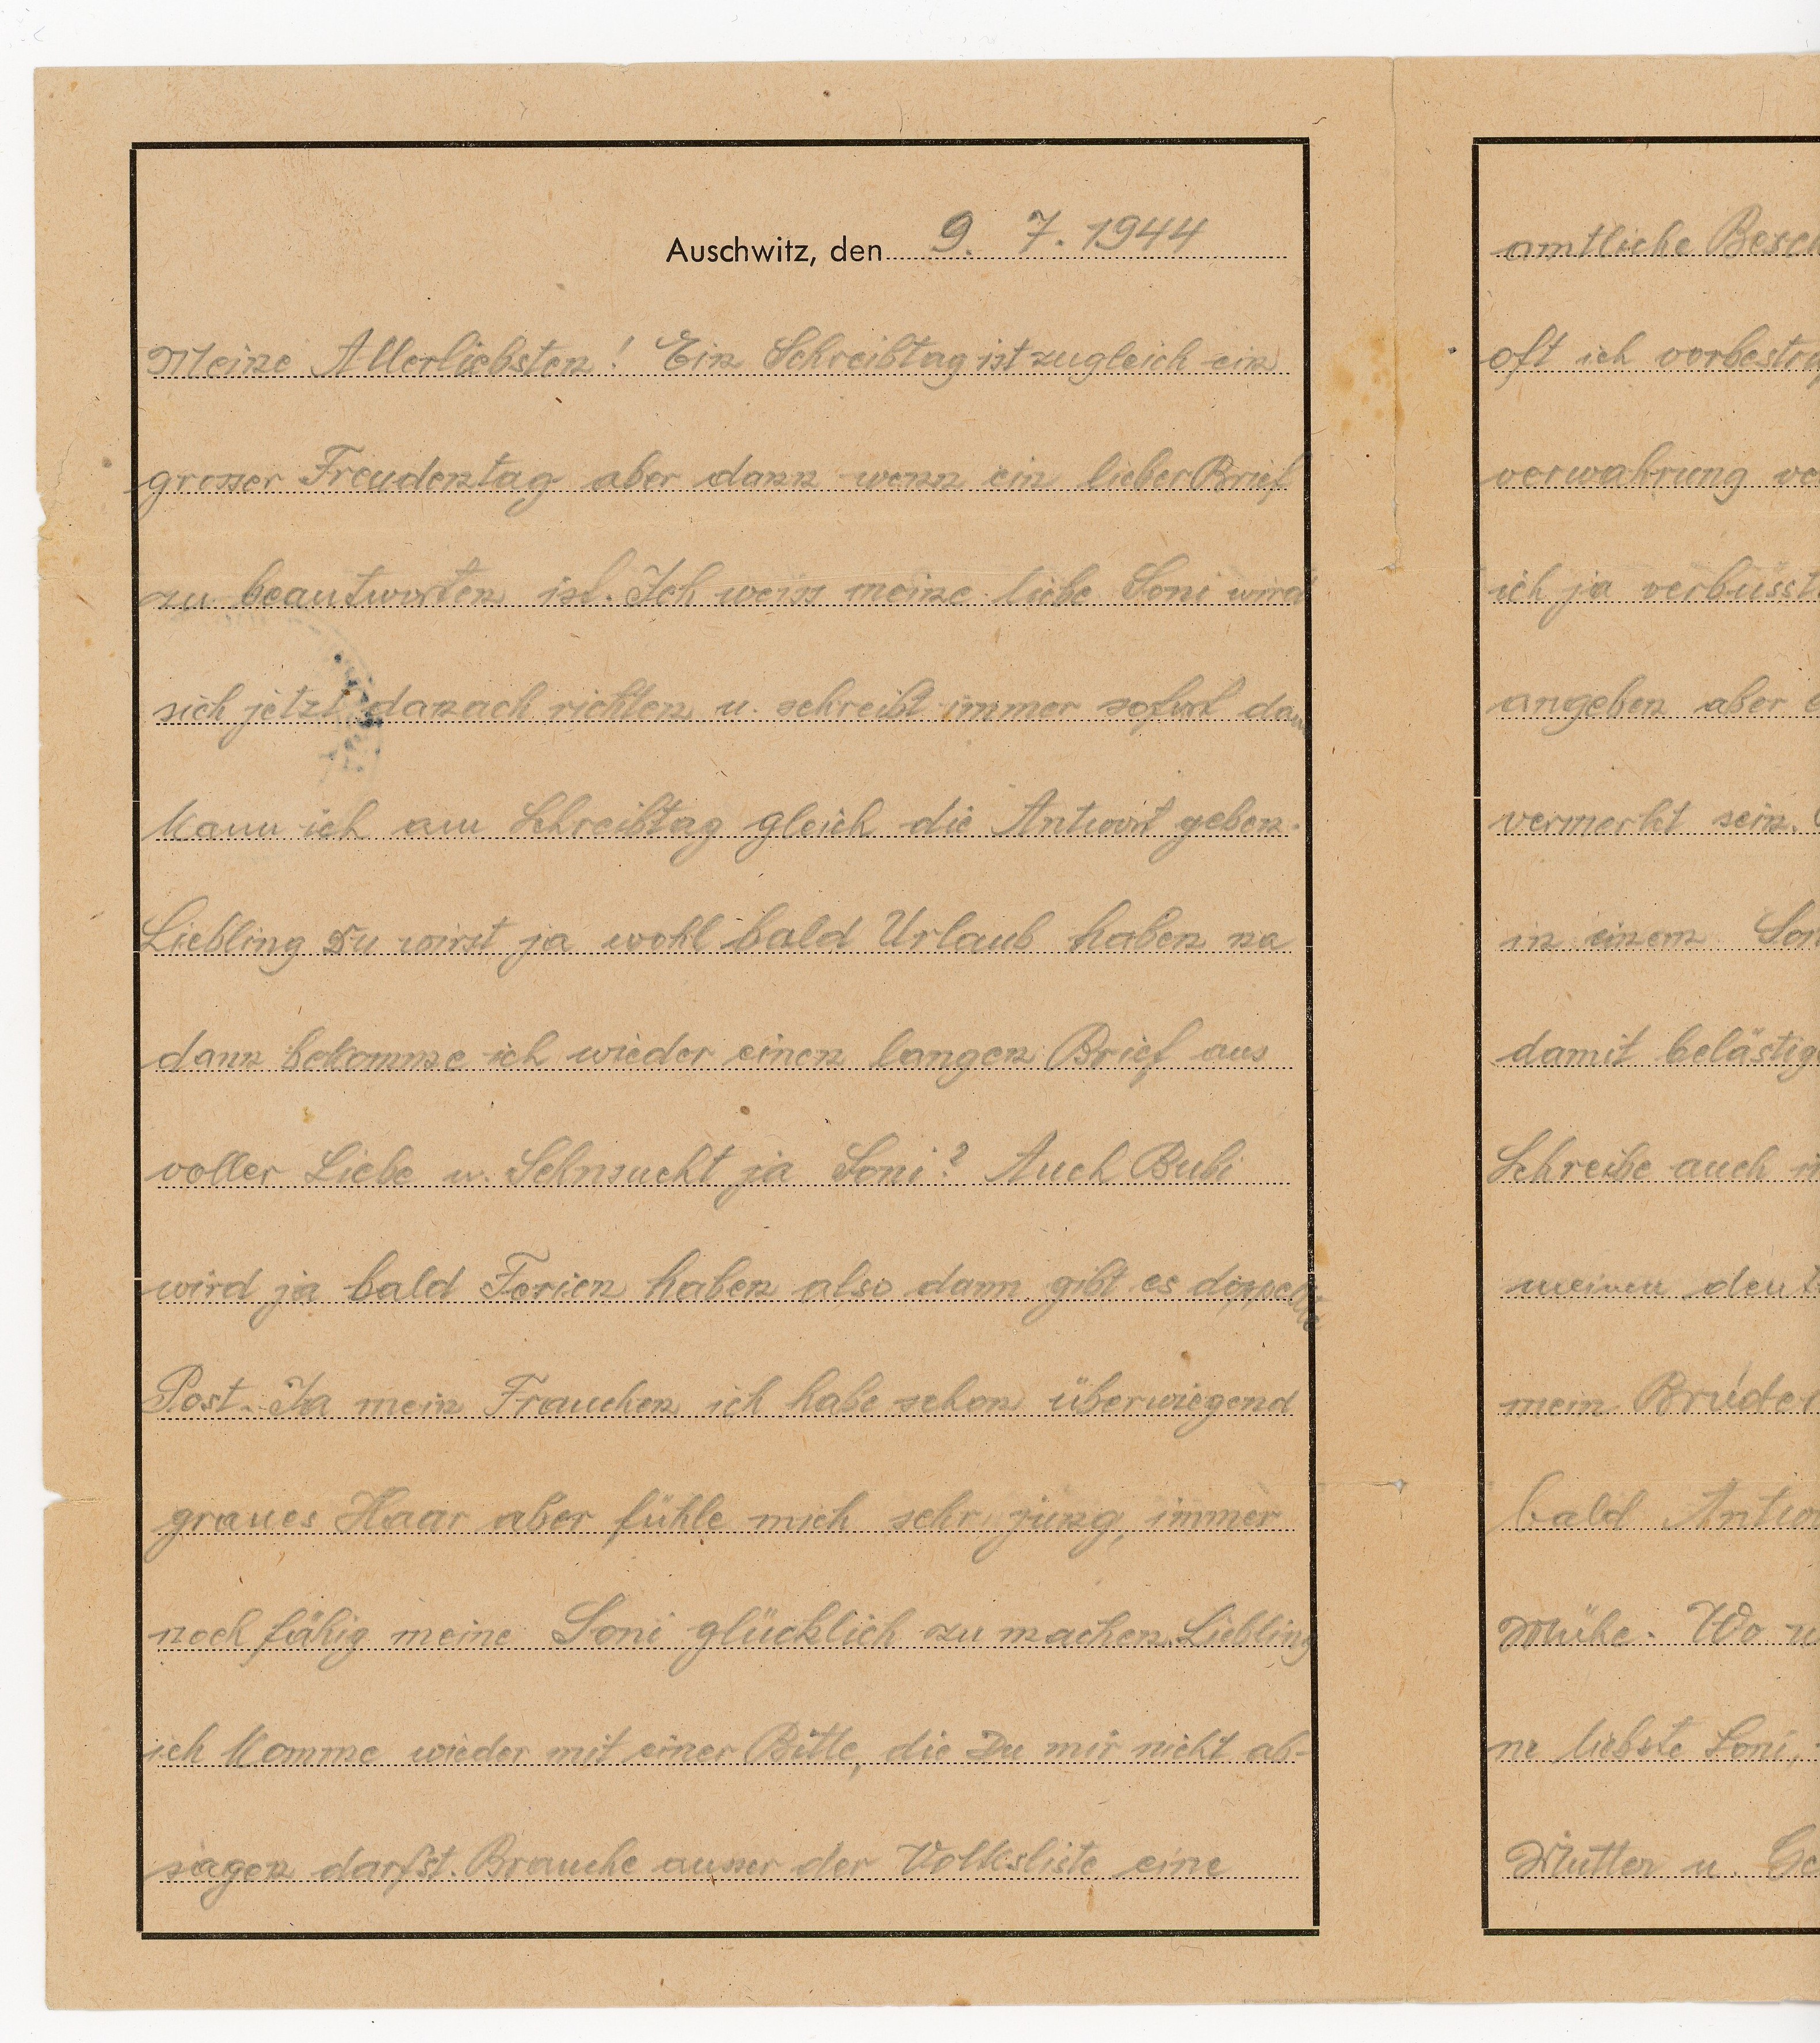 Auschwitz, den 9. 7. 1944
Meine Allerliebsten! Ein Schreibtag ist zugleich ein
grosser Freudentag aber dann wenn ein lieber Brief
zu beantworten ist. Ich weiss meine liebe Soni wird
sich jetzt danach richten u. schreibt immer sofort dann
kann ich am Schreibtag gleich die Antwort geben.
Liebling Du wirst ja wohl bald Urlaub haben na
dann bekomme ich wieder einen langen Brief aus
voller Liebe u. Sehnsucht ja Soni? Auch Bubi
wird ja bald Ferien haben also dann gibt es doppelte
Post. Ja mein Frauchen ich habe schon überwiegend
graues Haar aber fühle mich sehr jung, immer
noch fähig meine Soni glücklich zu machen. Liebling
ich komme wieder mit einer Bitte, die Du mir nicht ab-
sagen darfst. Brauche ausser der Volksliste eine
amtliche Besch
oft ich vorbestra
verwahrung ve
ich ja verbüsst
angeben aber e
vermerkt sein.
in einem Son
damit belästig
Schreibe auch
meinen deut
mein Bruder
bald Antwo
Mühe. Wo
ne liebste Soni,
Mutter u. Ge